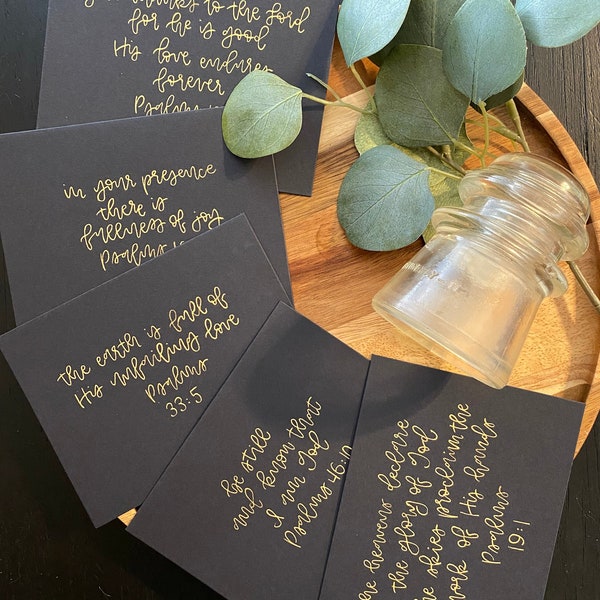 thanks to the Lord
for he is good
His love endures
forever
Psalms
in your presence
there is
fullness of joy
Psalms
the earth is full of
His unfailing love
Psalms
33:5
be still
and know that
I am God
Psalms 46:10
the heavens declare
the glory of God
the skies proclaim the
work of His hands
Psalms
19:1